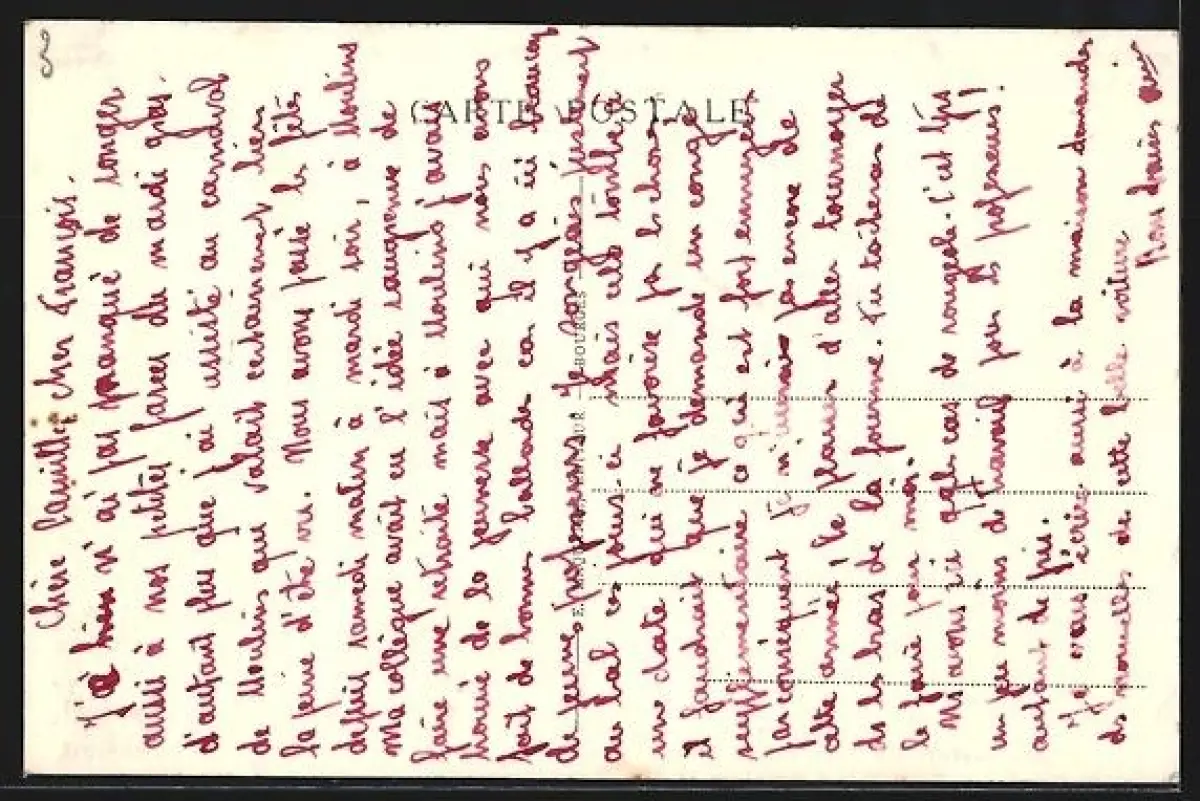 CARTE POSTALE
BOURGES
Chère Paulette, cher François.
J'ai bien n'ai pas manqué de songer
aussi à nos petites farces du mardi gras.
d'autant plus que j'ai assisté au carnaval
de Moulins qui valait certainement bien
la peine d'être vu. Nous avons passé les fêtes
depuis samedi matin à mardi soir, à Moulins
Ma collègue avait eu l'idée saugrenue de
faire une retraite mais à Moulins j'avais
trouvé de la jeunesse avec qui nous avons
fait de bonnes ballades car il y a eu beaucoup
de jeunes professeurs. Je songeais justement
au bal ces jours-ci mais cela tombe à
une date qui ne favorise pas les choses
et faudrait que je demande un congé
supplémentaire ce qui est fort ennuyeux
par conséquent je n'aurais pas encore
cette année le plaisir d'aller tournoyer
ds les bras de la fouine. Tu tâcheras de
le faire pour moi.
Mis à ici cas de rougeole. C'est tjs
un peu moins de travail pour les professeurs!
autant de pris.
Je vous écris aussi à la maison demander
des nouvelles de cette belle voiture
Bons baisers